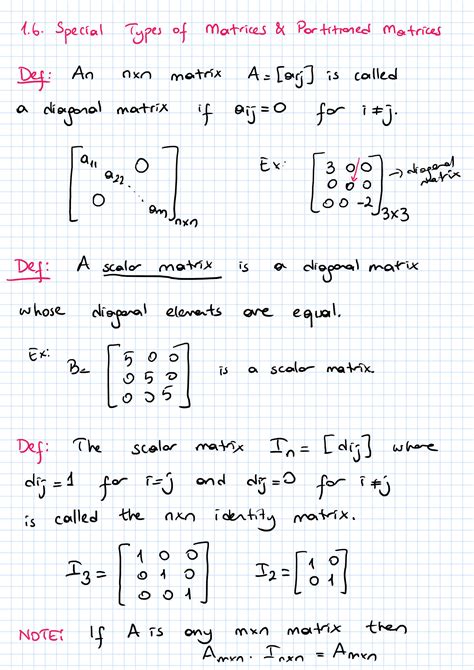 1.6. Special Types of Matrices & Partitioned Matrices
Def: An nxn matrix A=[aij] is called
a diagonal matrix if aij=0 for i≠j.
[a11 0
a22
0 ⋱ ann]nxn
Ex: [3 0 0
0 0 0
0 0 -2]3x3 → diagonal matrix
Def: A scalar matrix is a diagonal matrix
whose diagonal elements are equal.
Ex: B= [5 0 0
0 5 0
0 0 5] is a scalar matrix.
Def: The scalar matrix In = [dij] where
dij=1 for i=j and dij=0 for i≠j
is called the nxn identity matrix.
I3= [1 0 0
0 1 0
0 0 1] I2= [1 0
0 1]
NOTE: If A is any mxn matrix then
Amxn . Inxn = Amxn